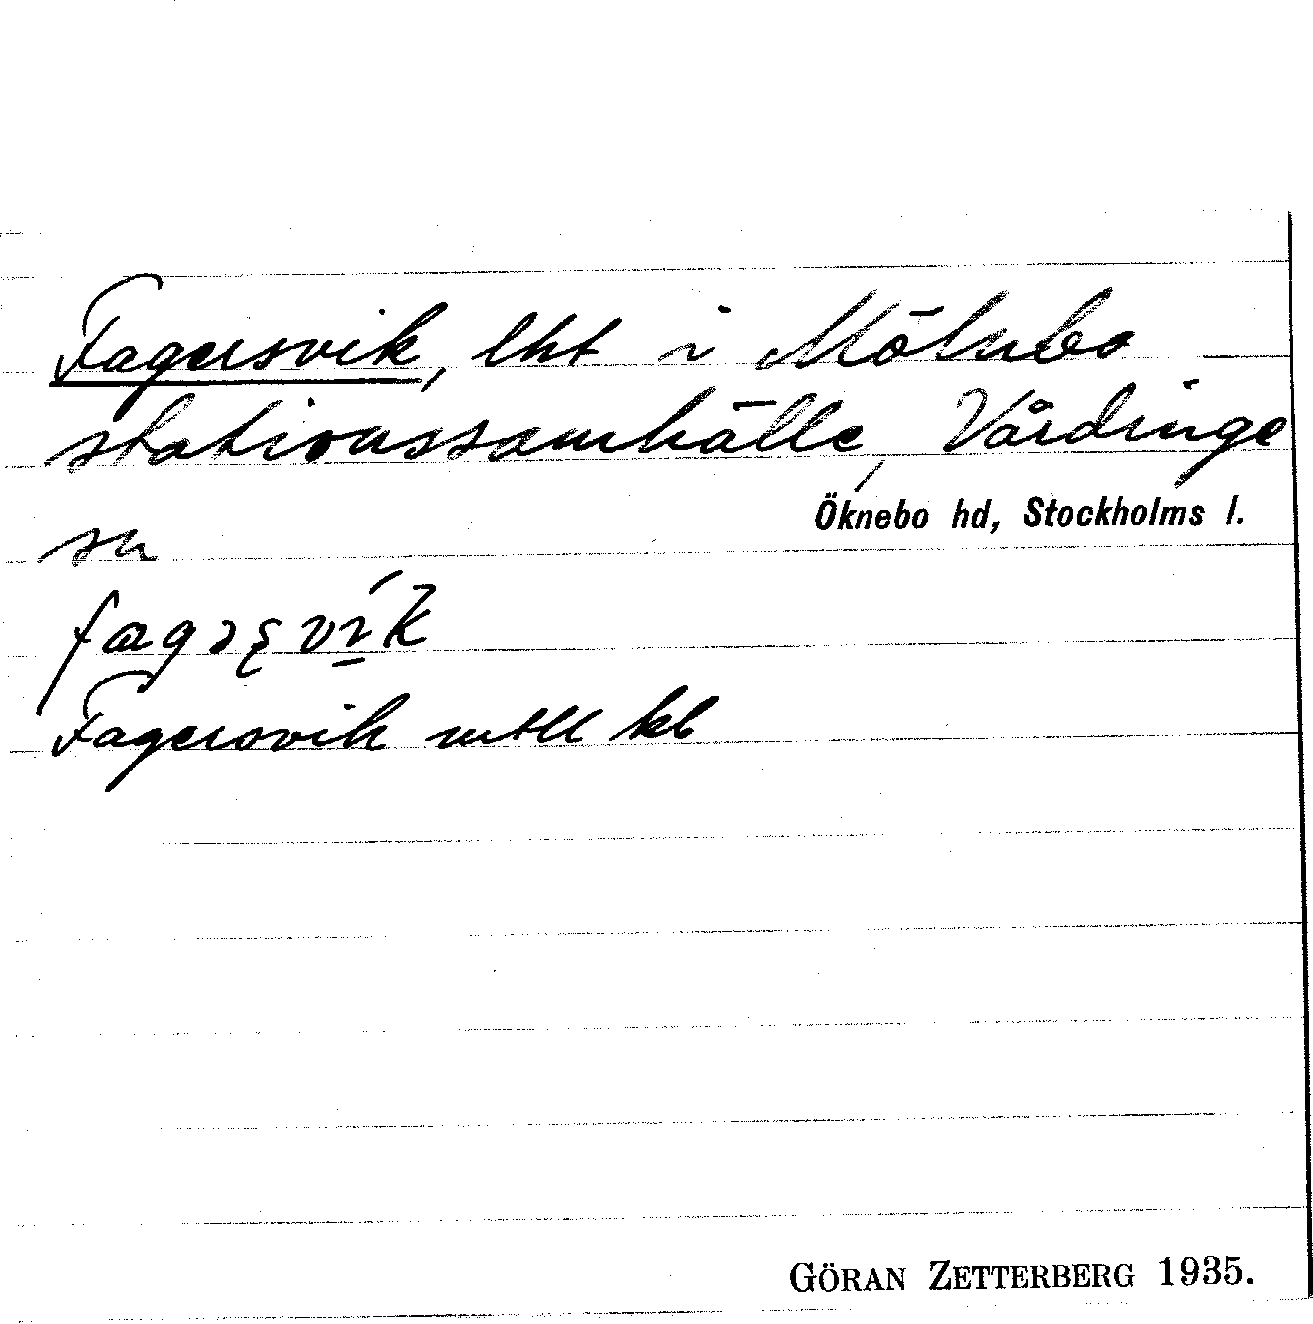 Fagersvik, lht i Mölnbo
stationssamhälle, Vårdinge
sn
Öknebo hd, Stockholms l.
fagəʂvik
Fagersvik mtll kb
GÖRAN ZETTERBERG 1935.